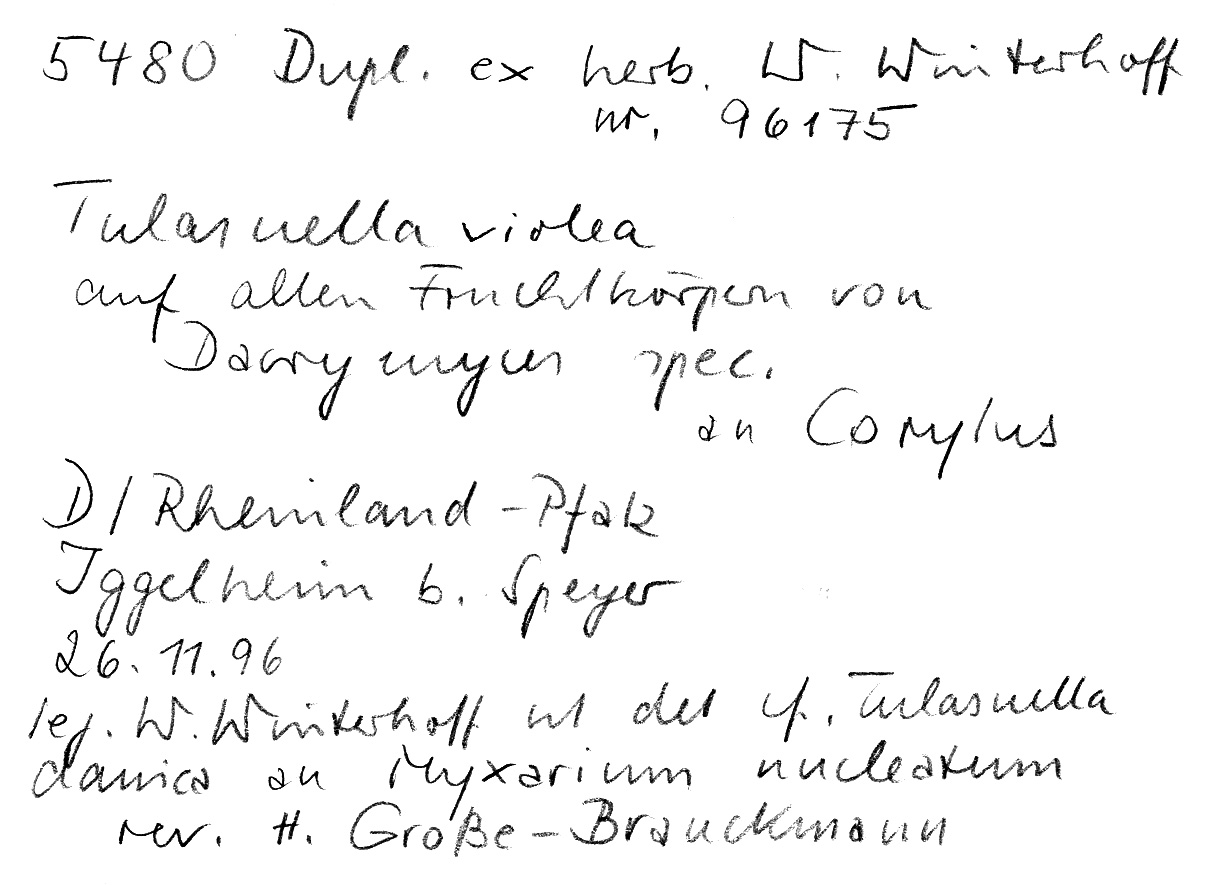 5480 Dupl. ex herb. W. Winterhoff
nr. 96175
Tulasnella violea
auf alten Fruchtkörpern von
Dacrymyces spec.
an Corylus
D/Rheinland-Pfalz
Iggelheim b. Speyer
26.11.96
leg. W. Winterhoff ut det cf. Tulasnella
danica an Myxarium nucleatum
rev. H. Große-Brauckmann